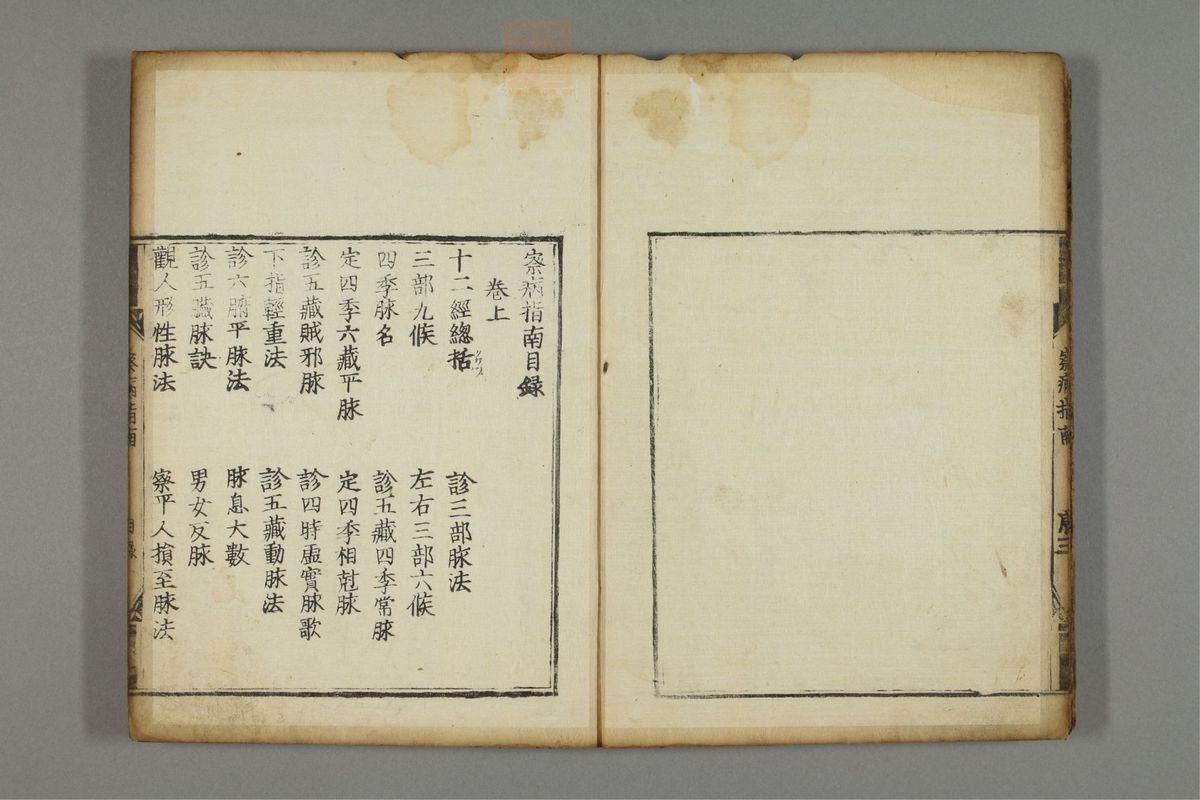 察病指南
序三
察病指南目録
卷上
十二經總括
診三部脉法
三部九候
左右三部六候
四季脉名
診五藏四季常脉
定四季六藏平脉
定四季相尅脉
診五藏賊邪脉
診四時虚實脉歌
下指輕重法
診五藏動脉法
診六腑平脉法
脉息大數
診五臟脉訣
男女反脉
觀人形性脉法
察平人損至脉法
察病指南
目録